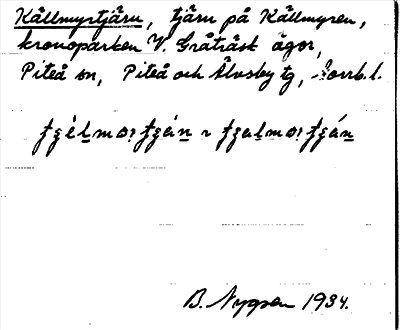 Källmyrtjärn, tjärn på Källmyren,
kronoparken V. Gråträsk ägor,
Piteå sn, Piteå och Älvsby tg, Norrb. l.
B. Nygren 1934.